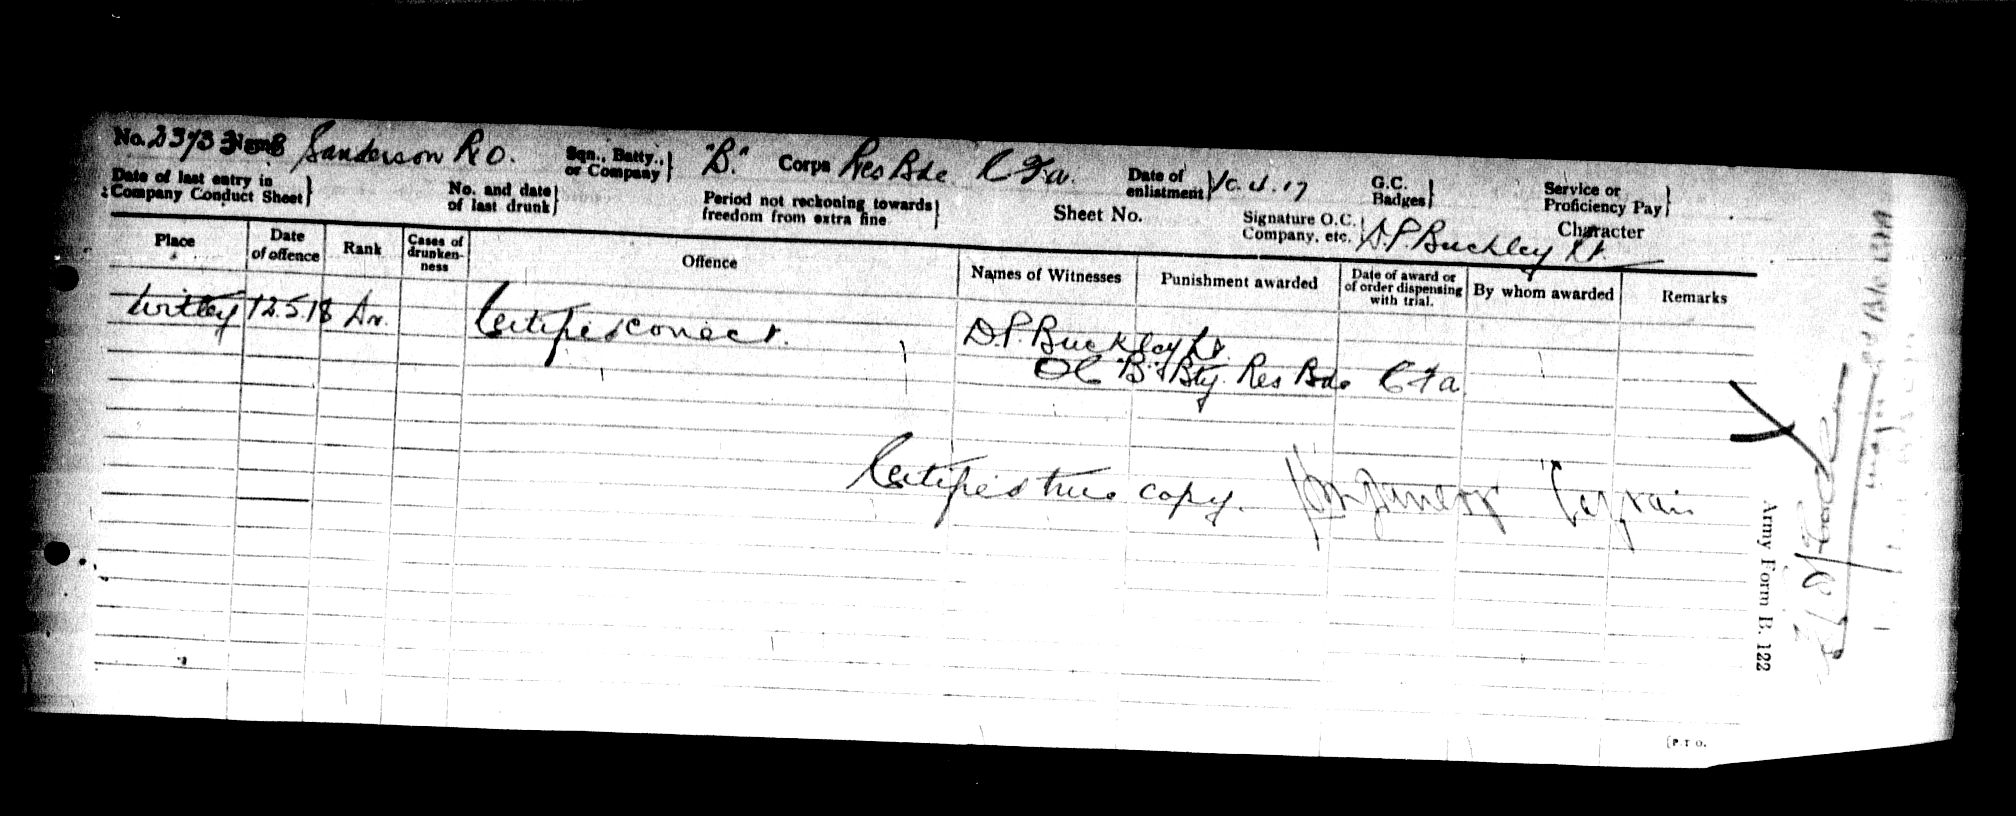 No. 2373308 Name Sanderson R O. Sqn., Batty., or Company} "B." Corps Res Bde C F a. Date of enlistment} 10.4.17 G.C. Badges} Service or Proficiency Pay}
Date of last entry in Company Conduct Sheet} No. and date of last drunk} Period not reckoning towards freedom from extra fine} Sheet No. Signature O.C. Company, etc.} D.P. Buckley Lt Character
Place Date of offence Rank Cases of drunken-ness Offence Names of Witnesses Punishment awarded Date of award or of order dispensing with trial. By whom awarded Remarks
Witley 12.5.18 Dr. Certified correct. D.P. Buckley Lt.
OC "B" Bty. Res Bde C F a
Certified true copy. Captain
Army Form B. 122
[P.T.O.